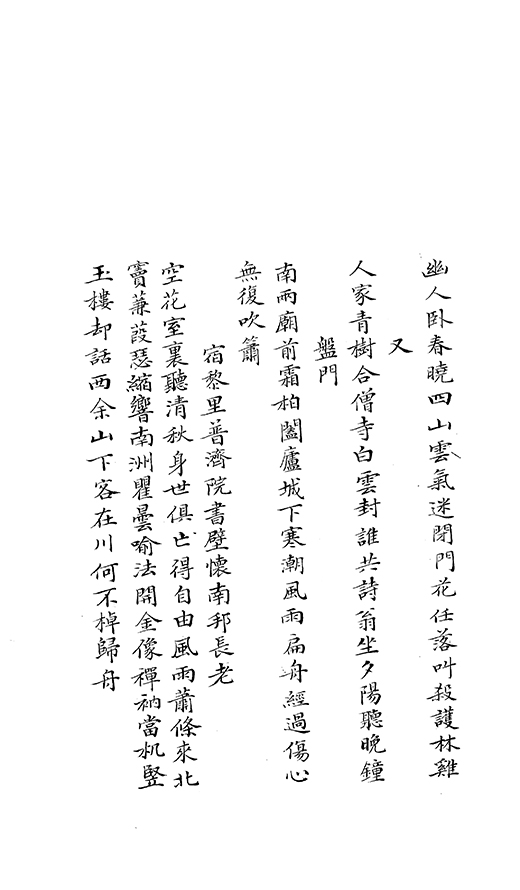 幽人卧春曉四山雲氣迷閉門花任落叫殺護林雞
又
人家青樹合僧寺白雲封誰共詩翁坐夕陽聽晚鐘
盤門
南兩廟前霜柏闔廬城下寒潮風雨扁舟經過傷心
無復吹簫
宿黎里普濟院書壁懷南邦長老
空花室裏聽清秋身世俱亡得自由風雨蕭條來北
竇蒹葭瑟縮響南洲瞿曇喻法開金像禪衲當机竪
玉樓却話西余山下客在川何不棹歸舟